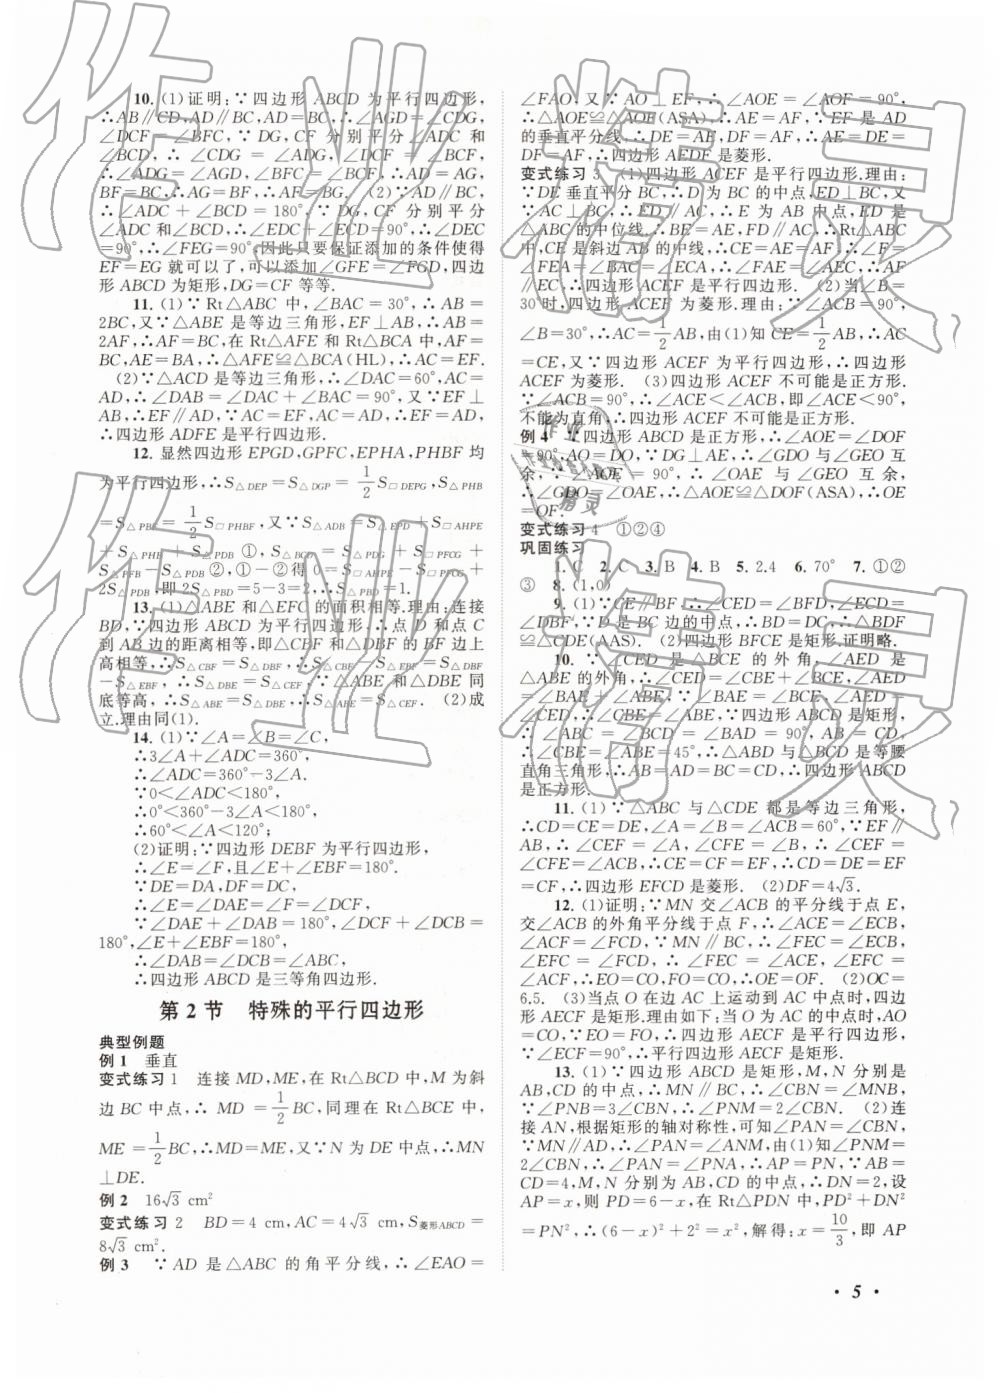 10. (1)证明:∵四边形 ABCD 为平行四边形,
∴AB∥CD,AD∥BC,AD=BC,∴∠AGD=∠CDG,
∠DCF=∠BFC,∵DG,CF 分别平分∠ADC 和
∠BCD,∴∠CDG=∠ADG,∠DCF=∠BCF,
∴∠ADG=∠AGD,∠BFC=∠BCF,∴AD=AG,
BF=BC,∴AG=BF,∴AF=BG. (2)∵AD∥BC,
∴∠ADC+∠BCD=180°,∵DG,CF 分别平分
∠ADC 和∠BCD,∴∠EDC+∠ECD=90°,∴∠DEC
=90°,∴∠FEG=90°,因此只要保证添加的条件使得
EF=EG 就可以了,可以添加∠GFE=∠FGD,四边
形 ABCD 为矩形,DG=CF 等等.
11. (1)∵Rt△ABC 中,∠BAC=30°,∴AB=
2BC,又∵△ABE 是等边三角形,EF⊥AB,∴AB=
2AF,∴AF=BC,在 Rt△AFE 和 Rt△BCA 中,AF=
BC,AE=BA,∴△AFE≌△BCA(HL),∴AC=EF.
(2)∵△ACD 是等边三角形,∴∠DAC=60°,AC=
AD,∴∠DAB=∠DAC+∠BAC=90°,又∵EF⊥
AB,∴EF∥AD,∵AC=EF,AC=AD,∴EF=AD,
∴四边形 ADFE 是平行四边形.
12. 显然四边形 EPGD,GPFC,EPHA,PHBF 均
为平行四边形,∴S△DEP=S△DGP=1/2S□DEPG,S△PHB
=S△PBF=1/2S□PHBF,又∵S△ADB=S△EPD+S□AHPE
+S△PHB+S△PDB ①,S△BCD=S△PDG+S□PFCG+
S△PFB-S△PDB ②,①-②得 0=S□AHPE-S□PFCG+
2S△PDB,即 2S△PBD=5-3=2,∴S△PBD=1.
13. (1)△ABE 和△EFC 的面积相等.理由:连接
BD.∵四边形 ABCD 为平行四边形,∴点 D 和点 C
到 AB 边的距离相等,即△CBF 和△DBF 的 BF 边上
高相等,∴S△CBF=S△DBF,∴S△CBF-S△EBF=S△DBF
-S△EBF,∴S△DBE=S△CEF,∵△ABE 和△DBE 同
底等高,∴S△ABE=S△DBE,∴S△ABE=S△CEF. (2)成
立.理由同(1).
14. (1)∵∠A=∠B=∠C,
∴3∠A+∠ADC=360°,
∴∠ADC=360°-3∠A.
∵0<∠ADC<180°,
∴0°<360°-3∠A<180°,
∴60°<∠A<120°;
(2)证明:∵四边形 DEBF 为平行四边形,
∴∠E=∠F,且∠E+∠EBF=180°.
∵DE=DA,DF=DC,
∴∠E=∠DAE=∠F=∠DCF,
∵∠DAE+∠DAB=180°,∠DCF+∠DCB=
180°,∠E+∠EBF=180°,
∴∠DAB=∠DCB=∠ABC,
∴四边形 ABCD 是三等角四边形.
第 2 节 特殊的平行四边形
典型例题
例 1 垂直
变式练习 1 连接 MD,ME,在 Rt△BCD 中,M 为斜
边 BC 中点,∴MD=1/2BC,同理在 Rt△BCE 中,
ME=1/2BC,∴MD=ME,又∵N 为 DE 中点,∴MN
⊥DE.
例 2 16√3 cm²
变式练习 2 BD=4 cm,AC=4√3 cm,S菱形ABCD=
8√3 cm².
例 3 ∵AD 是△ABC 的角平分线,∴∠EAO=
∠FAO,又∵AO⊥EF,∴∠AOE=∠AOF=90°,
∴△AOE≌△AOF(ASA),∴AE=AF,∴EF 是 AD
的垂直平分线,∴DE=AE,DF=AF,∴AE=DE=
DF=AF,∴四边形 AEDF 是菱形.
变式练习 3 (1)四边形 ACEF 是平行四边形.理由:
∵DE 垂直平分 BC,∴D 为 BC 的中点,ED⊥BC,又
∵AC⊥BC,∴ED∥AC,∴E 为 AB 中点,ED 是
△ABC 的中位线.∴BE=AE,FD∥AC,∴Rt△ABC
中,CE 是斜边 AB 的中线,∴CE=AE=AF,∴∠F=
∠FEA=∠BAC=∠ECA,∴∠FAE=∠AEC,∴AF
∥EC,∴四边形 ACEF 是平行四边形. (2)当∠B=
30°时,四边形 ACEF 为菱形.理由:∵∠ACB=90°,
∠B=30°,∴AC=1/2AB,由(1)知 CE=1/2AB,∴AC
=CE,又∵四边形 ACEF 为平行四边形,∴四边形
ACEF 为菱形. (3)四边形 ACEF 不可能是正方形.
∵∠ACB=90°,∴∠ACE<∠ACB,即∠ACE<90°,
不能为直角,∴四边形 ACEF 不可能是正方形.
例 4 ∵四边形 ABCD 是正方形,∴∠AOE=∠DOF
=90°,AO=DO,∵DG⊥AE,∴∠GDO 与∠GEO 互
余,∵∠AOE=90°,∴∠OAE 与∠GEO 互余,
∴∠GDO=∠OAE,∴△AOE≌△DOF(ASA),∴OE
=OF.
变式练习 4 ①②④
巩固练习
1. C 2. C 3. B 4. B 5. 2.4 6. 70° 7. ①②
③ 8. (1,0)
9. (1)∵CE∥BF,∴∠CED=∠BFD,∠ECD=
∠DBF,∵D 是 BC 边的中点,∴BD=DC,∴△BDF
≌△CDE(AAS). (2)四边形 BFCE 是矩形.证明略.
10. ∵∠CED 是△BCE 的外角,∠AED 是
△ABE 的外角,∴∠CED=∠CBE+∠BCE,∠AED
=∠BAE+∠ABE,∵∠BAE=∠BCE,∠AED=
∠CED,∴∠CBE=∠ABE,∵四边形 ABCD 是矩形,
∴∠ABC=∠BCD=∠BAD=90°,AB=CD,
∴∠CBE=∠ABE=45°,∴△ABD 与△BCD 是等腰
直角三角形,∴AB=AD=BC=CD,∴四边形 ABCD
是正方形.
11. (1)∵△ABC 与△CDE 都是等边三角形,
∴CD=CE=DE,∠A=∠B=∠ACB=60°,∵EF∥
AB,∴∠CEF=∠A,∠CFE=∠B,∴∠CEF=
∠CFE=∠ACB,∴CE=CF=EF,∴CD=DE=EF
=CF,∴四边形 EFCD 是菱形. (2)DF=4√3.
12. (1)证明:∵MN 交∠ACB 的平分线于点 E,
交∠ACB 的外角平分线于点 F,∴∠ACE=∠ECB,
∠ACF=∠FCD,∵MN∥BC,∴∠FEC=∠ECB,
∠EFC=∠FCD,∴∠FEC=∠ACE,∠EFC=
∠ACF,∴EO=CO,FO=CO,∴OE=OF. (2)OC=
6.5. (3)当点 O 在边 AC 上运动到 AC 中点时,四边
形 AECF 是矩形.理由如下:当 O 为 AC 的中点时,AO
=CO,∵EO=FO,∴四边形 AECF 是平行四边形,
∵∠ECF=90°,∴平行四边形 AECF 是矩形.
13. (1)∵四边形 ABCD 是矩形,M,N 分别是
AB,CD 的中点,∴MN∥BC,∴∠CBN=∠MNB,
∵∠PNB=3∠CBN,∴∠PNM=2∠CBN. (2)连
接 AN,根据矩形的轴对称性,可知∠PAN=∠CBN,
∵MN∥AD,∴∠PAN=∠ANM,由(1)知∠PNM=
2∠CBN,∴∠PAN=∠PNA,∴AP=PN,∵AB=
CD=4,M,N 分别为 AB,CD 的中点,∴DN=2,设
AP=x,则 PD=6-x,在 Rt△PDN 中,PD²+DN²
=PN²,∴(6-x)²+2²=x²,解得:x=10/3,即 AP
· 5 ·
作业精灵
作业精灵